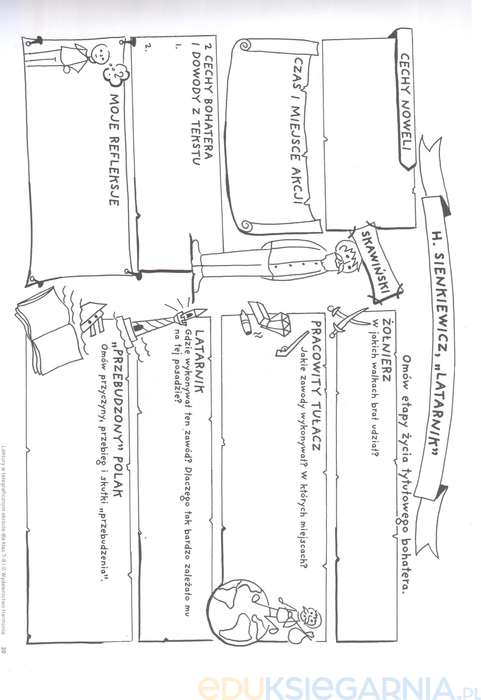 H. SIENKIEWICZ, „LATARNIK”
CECHY NOWELI
CZAS I MIEJSCE AKCJI
2 CECHY BOHATERA
I DOWODY Z TEKSTU
1.
2.
?
MOJE REFLEKSJE
SKAWIŃSKI
Omów etapy życia tytułowego bohatera.
ŻOŁNIERZ
W jakich walkach brał udział?
PRACOWITY TUŁACZ
Jakie zawody wykonywał? W których miejscach?
LATARNIK
Gdzie wykonywał ten zawód? Dlaczego tak bardzo zależało mu
na tej posadzie?
„PRZEBUDZONY” POLAK
Omów przyczyny, przebieg i skutki „przebudzenia”.
EDUKSIEGARNIA.PL